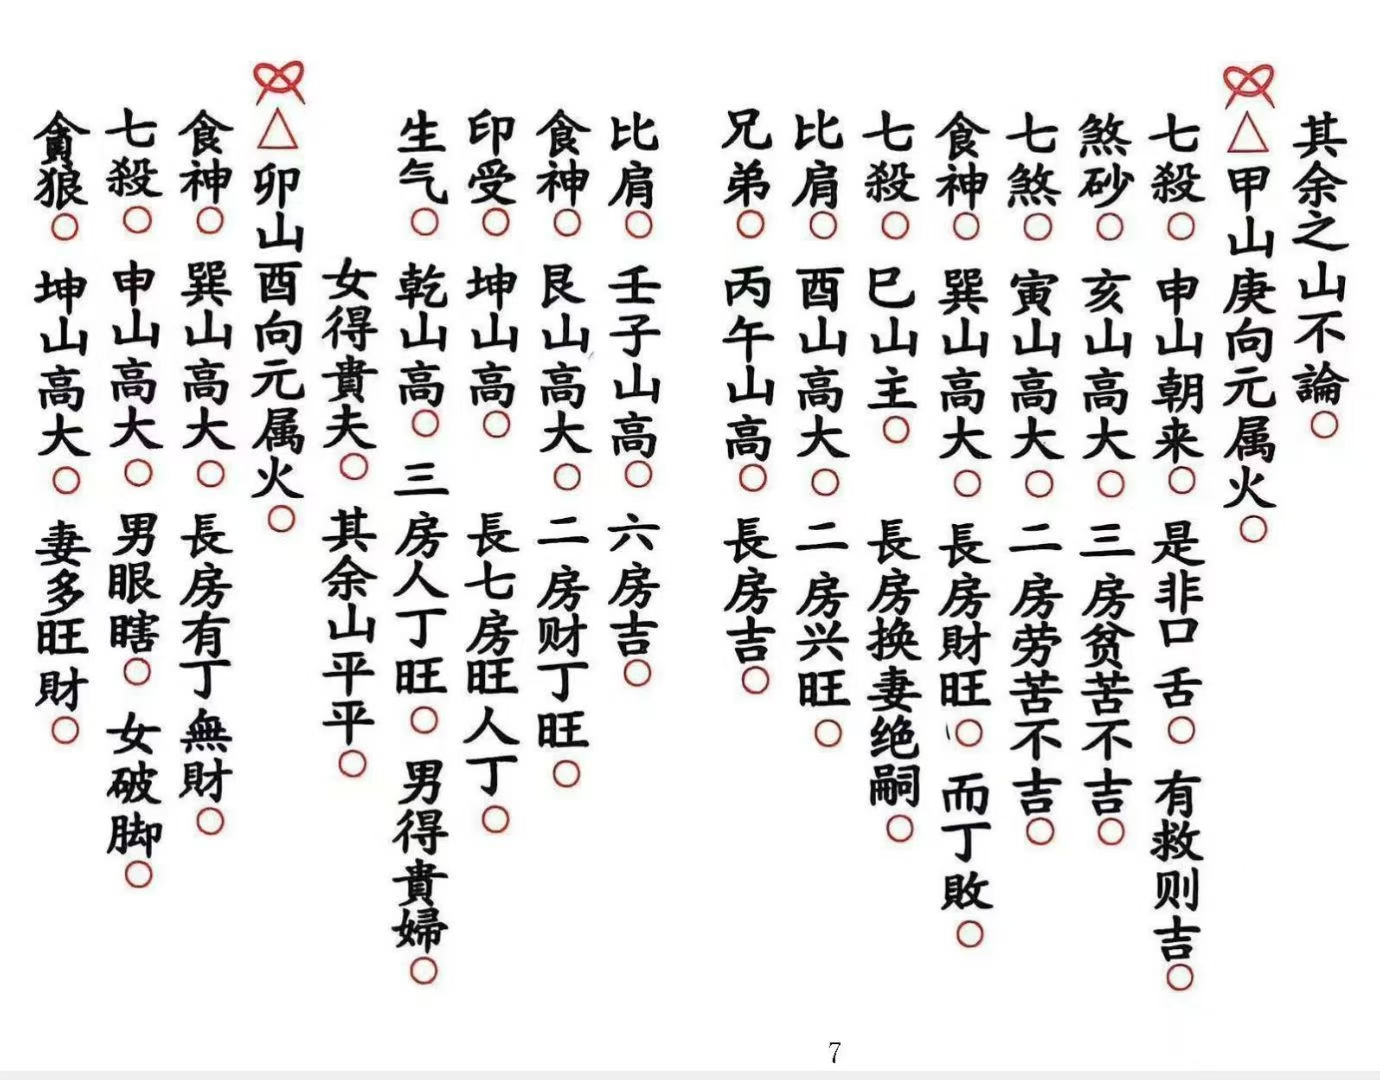 其余之山不論○
△甲山庚向元属火○
七殺○申山朝来○是非口舌○有救则吉○
煞砂○亥山高大○三房贫苦不吉○
七煞○寅山高大○二房劳苦不吉○
食神○巽山高大○長房財旺○而丁敗○
七殺○巳山主○長房换妻绝嗣○
比肩○酉山高大○二房兴旺○
兄弟○丙午山高○長房吉○
比肩○壬子山高○六房吉○
食神○艮山高大○二房财丁旺○
印受○坤山高○長七房旺人丁○
生气○乾山高○三房人丁旺○男得貴婦○
女得貴夫○其余山平平○
△卯山酉向元属火○
食神○巽山高大○長房有丁無財○
七殺○申山高大○男眼瞎○女破脚○
貪狼○坤山高大○妻多旺財○
7